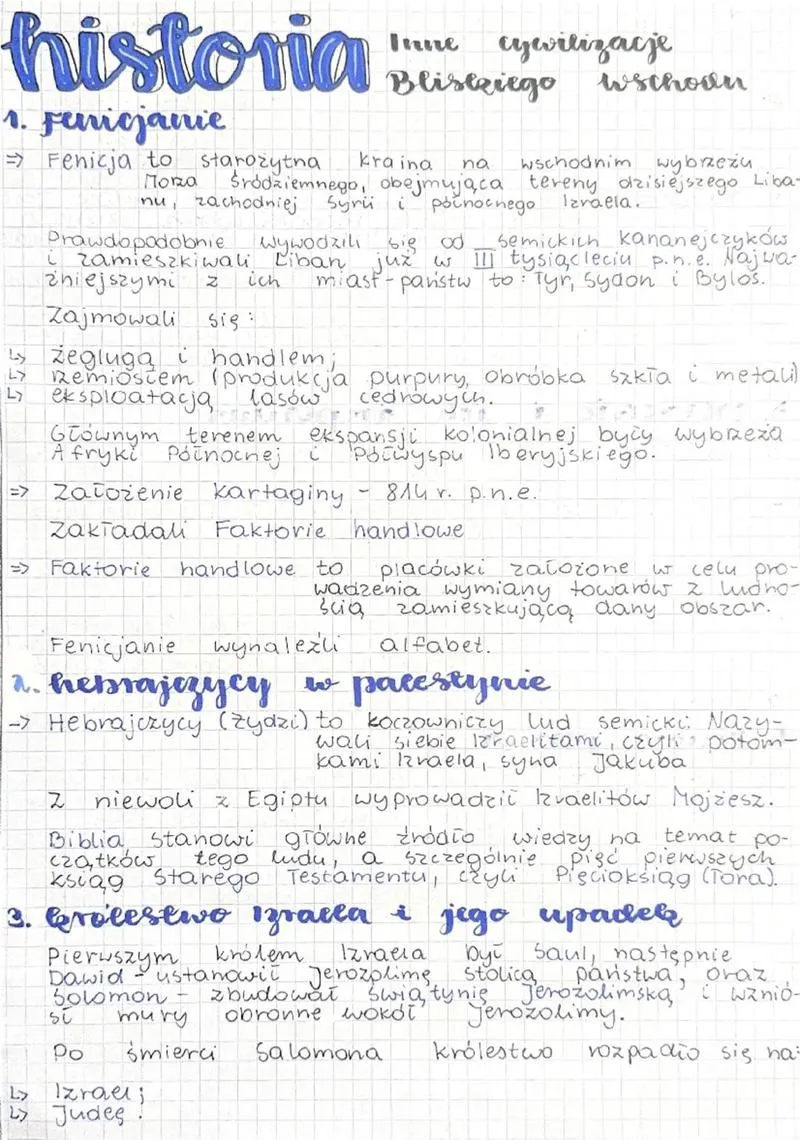 historia
Inne cywilizacje
Bliskiego Wschodu
1. Fenicjanie
=> Fenicja to starożytna kraina na wschodnim wybrzeżu
Morza Śródziemnego, obejmująca tereny dzisiejszego Liba-
nu, zachodniej Syrii i północnego Izraela.
Prawdopodobnie wywodzili się od semickich kananejczyków
i zamieszkiwali Liban już w III tysiącleciu p.n.e. Najwa-
żniejszymi z ich miast-państw to: Tyr, Sydon i Bylos.
Zajmowali się:
↳ żeglugą i handlem;
↳ rzemiosłem (produkcja purpury, obróbka szkła i metali)
↳ eksploatacją lasów cedrowych.
Głównym terenem ekspansji kolonialnej były wybrzeża
Afryki Północnej i Półwyspu Iberyjskiego.
=> Założenie Kartaginy - 814 r. p.n.e.
Zakładali Faktorie handlowe
=> Faktorie handlowe to placówki założone w celu pro-
wadzenia wymiany towarów z ludno-
ścią zamieszkującą dany obszar.
Fenicjanie wynaleźli alfabet.
2. hebrajczycy w palestynie
-> Hebrajczycy (Żydzi) to koczowniczy lud semicki. Nazy-
wali siebie Izraelitami, czyli potom-
kami Izraela, syna Jakuba
Z niewoli z Egiptu wyprowadził Izraelitów Mojżesz.
Biblia stanowi główne źródło wiedzy na temat po-
czątków tego ludu, a szczególnie pięć pierwszych
ksiąg Starego Testamentu, czyli Pięcioksiąg (Tora).
3. królestwo Izraela i jego upadek
Pierwszym królem Izraela był Saul, następnie
Dawid - ustanowił Jerozolimę stolicą państwa, oraz
Solomon - zbudował świątynię Jerozolimską i wznió-
sł mury obronne wokół Jerozolimy.
Po śmierci Salomona królestwo rozpadło się na:
↳ Izrael;
↳ Judeę.